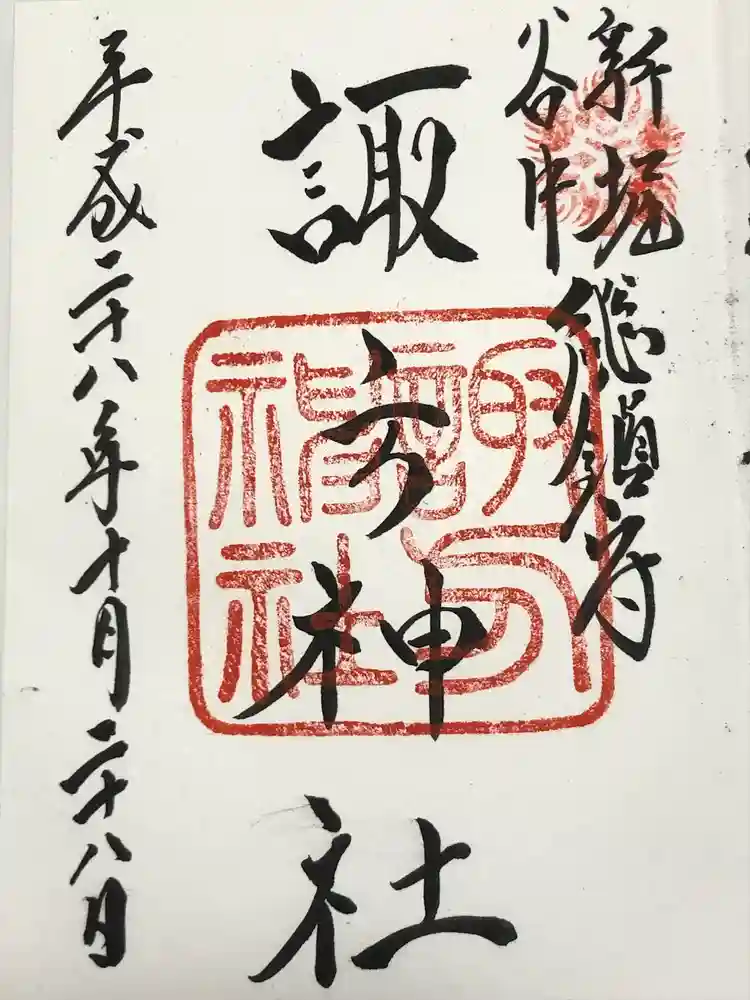 新堀
谷中
総鎮守
諏方神社
平成二十八年十月二十八日